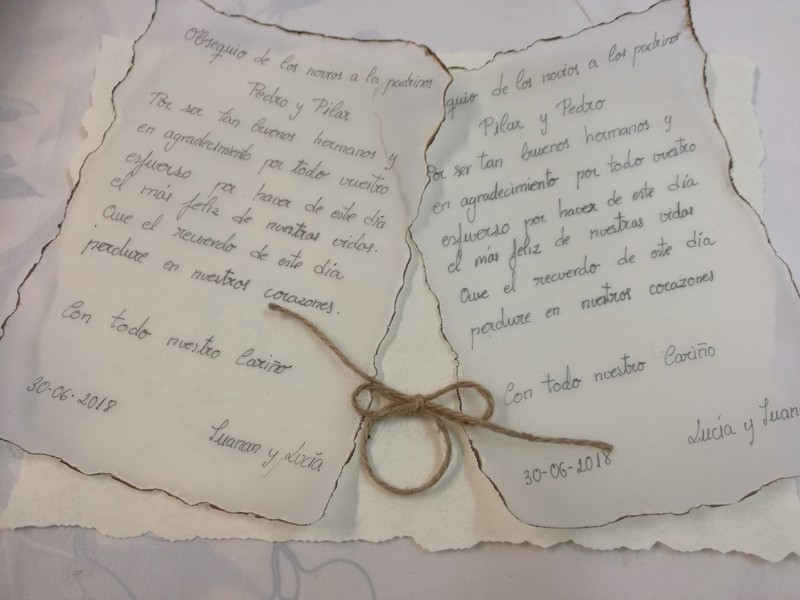 Obsequio de los novios a los padrinos
Pedro y Pilar
Por ser tan buenos hermanos y
en agradecimiento por todo vuestro
esfuerso por hacer de este día
el más feliz de nuestras vidas.
Que el recuerdo de este día
perdure en nuestros corazones.
Con todo nuestro Cariño
30-06-2018
Juanan y Lucía
quio de los novios a los padrinos
Pilar y Pedro
Por ser tan buenos hermanos y
en agradecimiento por todo vuestro
esfuerso por hacer de este día
el más feliz de nuestras vidas
Que el recuerdo de este día
perdure en nuestros corazones
Con todo nuestro Cariño
30-06-2018
Lucía y Juan